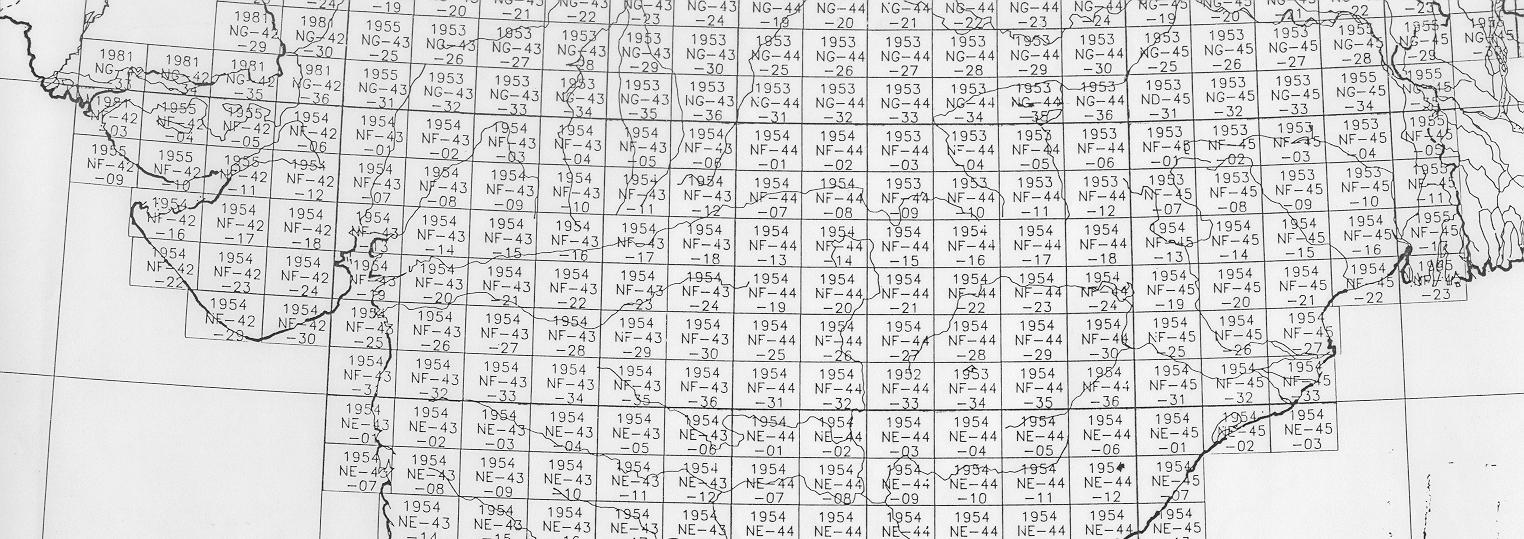 NG-43 NG-43 NG-43 NG-43 NG-43 NG-44 NG-44 NG-44 NG-44 NG-44 NG-44 NG-45
-24 -19 -20 -21 -22 -23 -24 -19 -20 -21 -22 -23 -24 -19 -20 -21 -22 -23
1981 1981 1955 1953 1953 1953 1953 1953 1953 1953 1953 1953 1953 1953 1953 1953 1953 1955 1955
NG-42 NG-42 NG-43 NG-43 NG-43 NG-43 NG-43 NG-43 NG-44 NG-44 NG-44 NG-44 NG-44 NG-44 NG-45 NG-45 NG-45 NG-45 NG-45
-29 -30 -25 -26 -27 -28 -29 -30 -25 -26 -27 -28 -29 -30 -25 -26 -27 -28 -29
1981 1981 1981 1981 1955 1953 1953 1953 1953 1953 1953 1953 1953 1953 1953 1953 1953 1953 1953 1955 1955
NG-42 NG-42 NG-42 NG-42 NG-43 NG-43 NG-43 NG-43 NG-43 NG-43 NG-44 NG-44 NG-44 NG-44 NG-44 NG-44 ND-45 NG-45 NG-45 NG-45 NG-45
-33 -34 -35 -36 -31 -32 -33 -34 -35 -36 -31 -32 -33 -34 -35 -36 -31 -32 -33 -34 -35
1981 1955 1955 1954 1954 1954 1954 1954 1954 1954 1954 1954 1954 1953 1953 1953 1953 1953 1953 1953 1955
NF-42 NF-42 NF-42 NF-42 NF-43 NF-43 NF-43 NF-43 NF-43 NF-43 NF-44 NF-44 NF-44 NF-44 NF-44 NF-44 NF-45 NF-45 NF-45 NF-45 NF-45
-03 -04 -05 -06 -01 -02 -03 -04 -05 -06 -01 -02 -03 -04 -05 -06 -01 -02 -03 -04 -05
1955 1955 1955 1954 1954 1954 1954 1954 1954 1954 1954 1954 1953 1953 1953 1953 1953 1953 1953 1953 1955
NF-42 NF-42 NF-42 NF-42 NF-43 NF-43 NF-43 NF-43 NF-43 NF-43 NF-44 NF-44 NF-44 NF-44 NF-44 NF-44 NF-45 NF-45 NF-45 NF-45 NF-45
-09 -10 -11 -12 -07 -08 -09 -10 -11 -12 -07 -08 -09 -10 -11 -12 -07 -08 -09 -10 -11
1954 1954 1954 1954 1954 1954 1954 1954 1954 1954 1954 1954 1954 1954 1954 1954 1954 1954 1954 1955
NF-42 NF-42 NF-42 NF-43 NF-43 NF-43 NF-43 NF-43 NF-43 NF-44 NF-44 NF-44 NF-44 NF-44 NF-44 NF-45 NF-45 NF-45 NF-45 NF-45
-16 -17 -18 -14 -15 -16 -17 -18 -13 -14 -15 -16 -17 -18 -13 -14 -15 -16 -17
1954 1954 1954 1954 1954 1954 1954 1954 1954 1954 1954 1954 1954 1954 1954 1954 1954 1954 1954 1954
NF-42 NF-42 NF-42 NF-43 NF-43 NF-43 NF-43 NF-43 NF-43 NF-44 NF-44 NF-44 NF-44 NF-44 NF-44 NF-45 NF-45 NF-45 NF-45
-22 -23 -24 -19 -20 -21 -22 -23 -24 -19 -20 -21 -22 -23 -24 -19 -20 -21 -22 -23
1954 1954 1954 1954 1954 1954 1954 1954 1954 1954 1954 1954 1954 1954 1954 1954 1954
NF-42 NF-42 NF-43 NF-43 NF-43 NF-43 NF-43 NF-43 NF-44 NF-44 NF-44 NF-44 NF-44 NF-44 NF-45 NF-45 NF-45
-29 -30 -25 -26 -27 -28 -29 -30 -25 -26 -27 -28 -29 -30 -25 -26 -27
1954 1954 1954 1954 1954 1954 1954 1954 1952 1953 1954 1954 1954 1954 1954
NF-43 NF-43 NF-43 NF-43 NF-43 NF-43 NF-44 NF-44 NF-44 NF-44 NF-44 NF-44 NF-45 NF-45 NF-45
-31 -32 -33 -34 -35 -36 -31 -32 -33 -34 -35 -36 -31 -32 -33
1954 1954 1954 1954 1954 1954 1954 1954 1954 1954 1954 1954 1954 1954 1954
NE-43 NE-43 NE-43 NE-43 NE-43 NE-43 NE-44 NE-44 NE-44 NE-44 NE-44 NE-44 NE-45 NE-45 NE-45
-01 -02 -03 -04 -05 -06 -01 -02 -03 -04 -05 -06 -01 -02 -03
1954 1954 1954 1954 1954 1954 1954 1954 1954 1954 1954 1954 1954
NE-43 NE-43 NE-43 NE-43 NE-43 NE-43 NE-44 NE-44 NE-44 NE-44 NE-44 NE-44 NE-45
-07 -08 -09 -10 -11 -12 -07 -08 -09 -10 -11 -12 -07
1954 1954 1954 1954 1954 1954 1954 1954 1954 1954 1954 1954
NE-43 NE-43 NE-43 NE-43 NE-43 NE-44 NE-44 NE-44 NE-44 NE-44 NE-44 NE-45
-14 -15